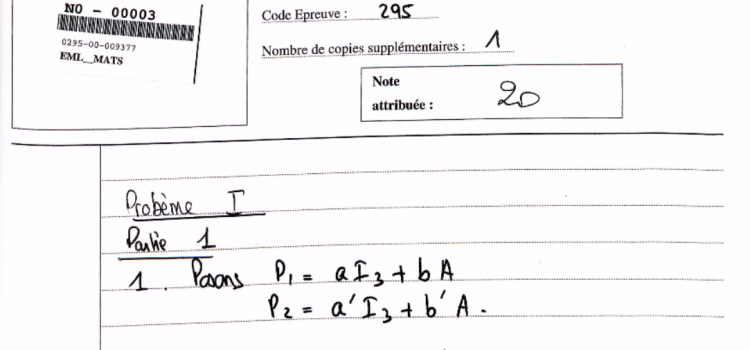 NO - 00003
0295-00-009377
EML__MATS
Code Epreuve : 295
Nombre de copies supplémentaires : 1
Note
attribuée : 20
Probème I
Partie 1
1. Posons P₁ = aI₃ + bA
P₂ = a'I₃ + b'A.